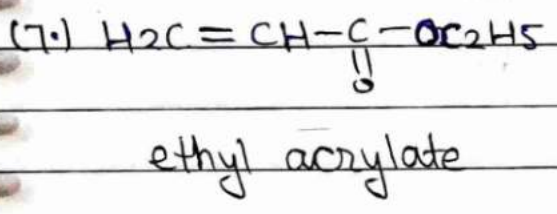 (7.) H2C = CH-C-OC2H5
||
O
ethyl acrylate